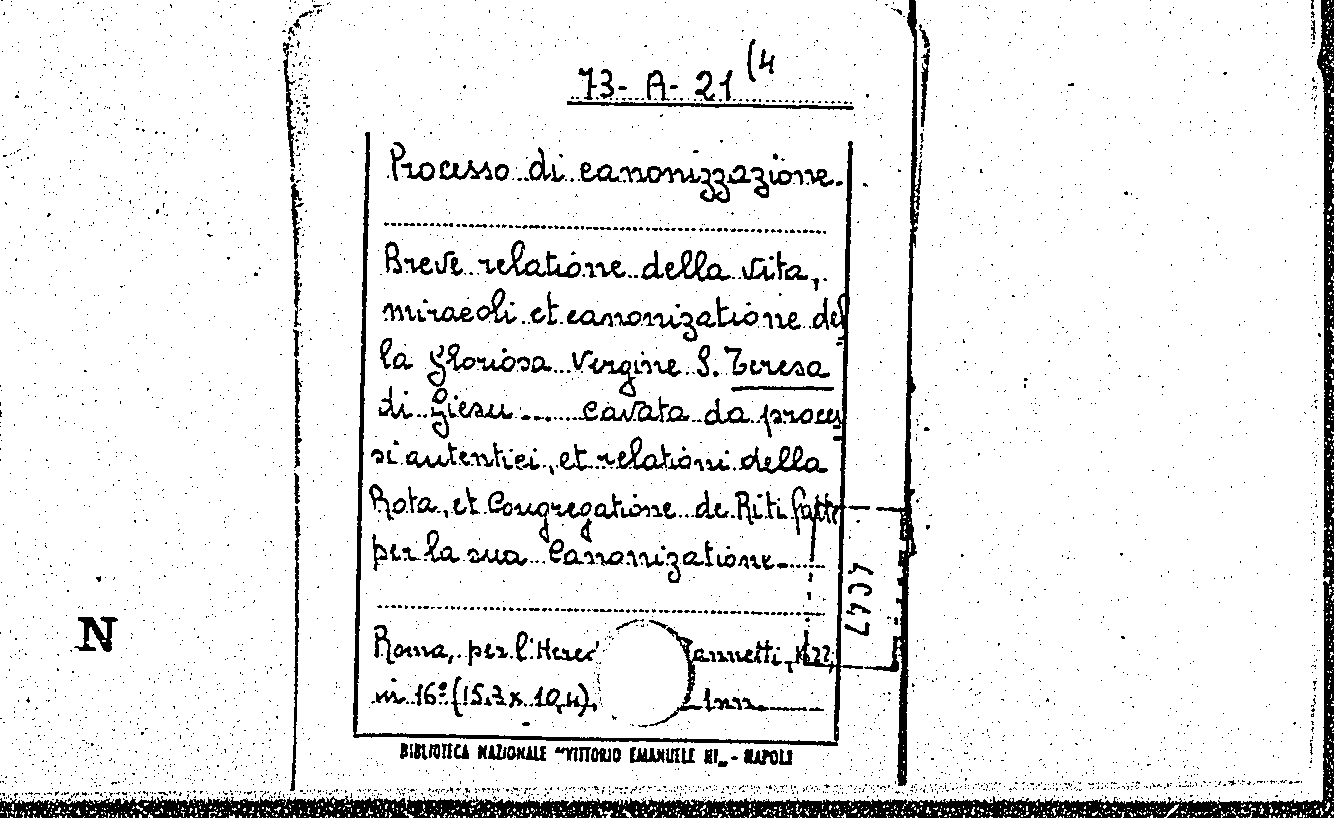 73- A- 21 (4
Processo di canonizzazione.
Breve relatione della vita,
miracoli et canonizatione del
la gloriosa Vergine S. Teresa
di Giesu .... cavata da proces
si autentici, et relationi della
Rota, et Congregatione de Riti fatte
per la sua Canonizatione.
Roma, per l'Hered Zannetti, 1622,
in 16° (15.3 x 10,4),
N
BIBLIOTECA NAZIONALE "VITTORIO EMANUELE III" - NAPOLI